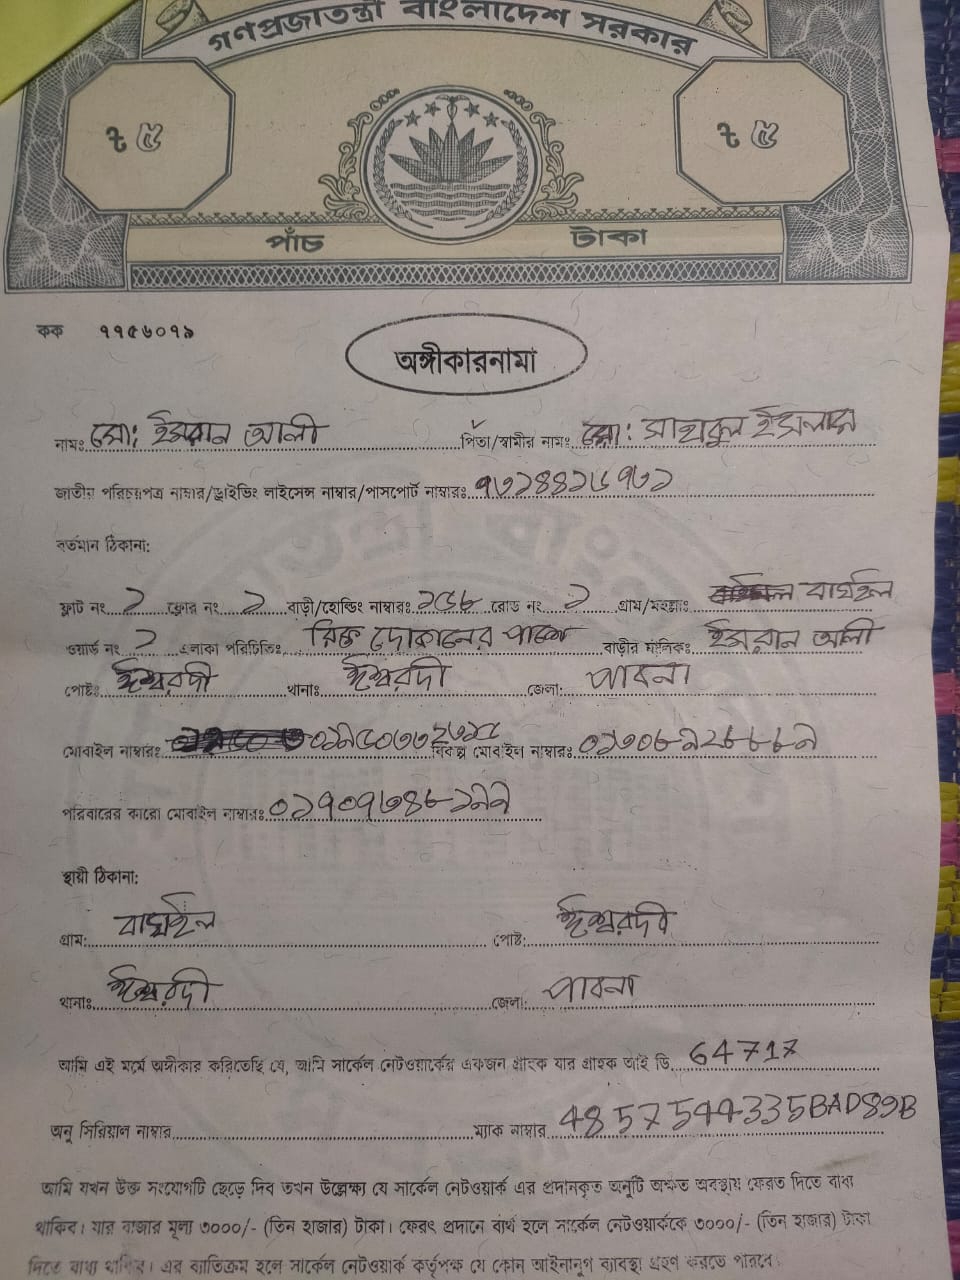 গণপ্রজাতন্ত্রী বাংলাদেশ সরকার
৳ ৫ ৳ ৫
পাঁচ টাকা
কক ৭৭৫৬০৭৯
অঙ্গীকারনামা
নামঃ মো: ইমরান আলী পিতা/স্বামীর নাম: মো: সাহাবুল ইসলাম
জাতীয় পরিচয়পত্র নাম্বার/ড্রাইভিং লাইসেন্স নাম্বার/পাসপোর্ট নাম্বারঃ
বর্তমান ঠিকানা:
ফ্লাট নং ১ ফ্লোর নং ১ বাড়ী/হোল্ডিং নাম্বারঃ রোড নং ১ গ্রাম/মহল্লাঃ বাঘইল
ওয়ার্ড নং ১ এলাকা পরিচিতিঃ দোকানের পাশে বাড়ীর মালিক: ইমরান আলী
পোষ্টঃ ঈশ্বরদী থানাঃ ঈশ্বরদী জেলা: পাবনা
মোবাইল নাম্বারঃ বিকল্প মোবাইল নাম্বারঃ
পরিবারের কারো মোবাইল নাম্বারঃ
স্থায়ী ঠিকানা:
গ্রাম: বাঘইল পোষ্ট: ঈশ্বরদী
থানাঃ ঈশ্বরদী জেলা: পাবনা
আমি এই মর্মে অঙ্গীকার করিতেছি যে, আমি সার্কেল নেটওয়ার্কের একজন গ্রাহক যার গ্রাহক আই ডি 64717
অনু সিরিয়াল নাম্বার ম্যাক নাম্বার 48575444335BAD89B
আমি যখন উক্ত সংযোগটি ছেড়ে দিব তখন উল্লেক্ষা যে সার্কেল নেটওয়ার্ক এর প্রদানকৃত অনুটি অক্ষত অবস্থায় ফেরত দিতে বাধ্য
থাকিব। যার বাজার মূল্য ৩০০০/- (তিন হাজার) টাকা। ফেরৎ প্রদানে ব্যর্থ হলে সার্কেল নেটওয়ার্ককে ৩০০০/- (তিন হাজার) টাকা
দিতে বাধ্য থাকিব। এর ব্যতিক্রম হলে সার্কেল নেটওয়ার্ক কর্তৃপক্ষ যে কোন আইনানুগ ব্যবস্থা গ্রহণ করতে পারবে